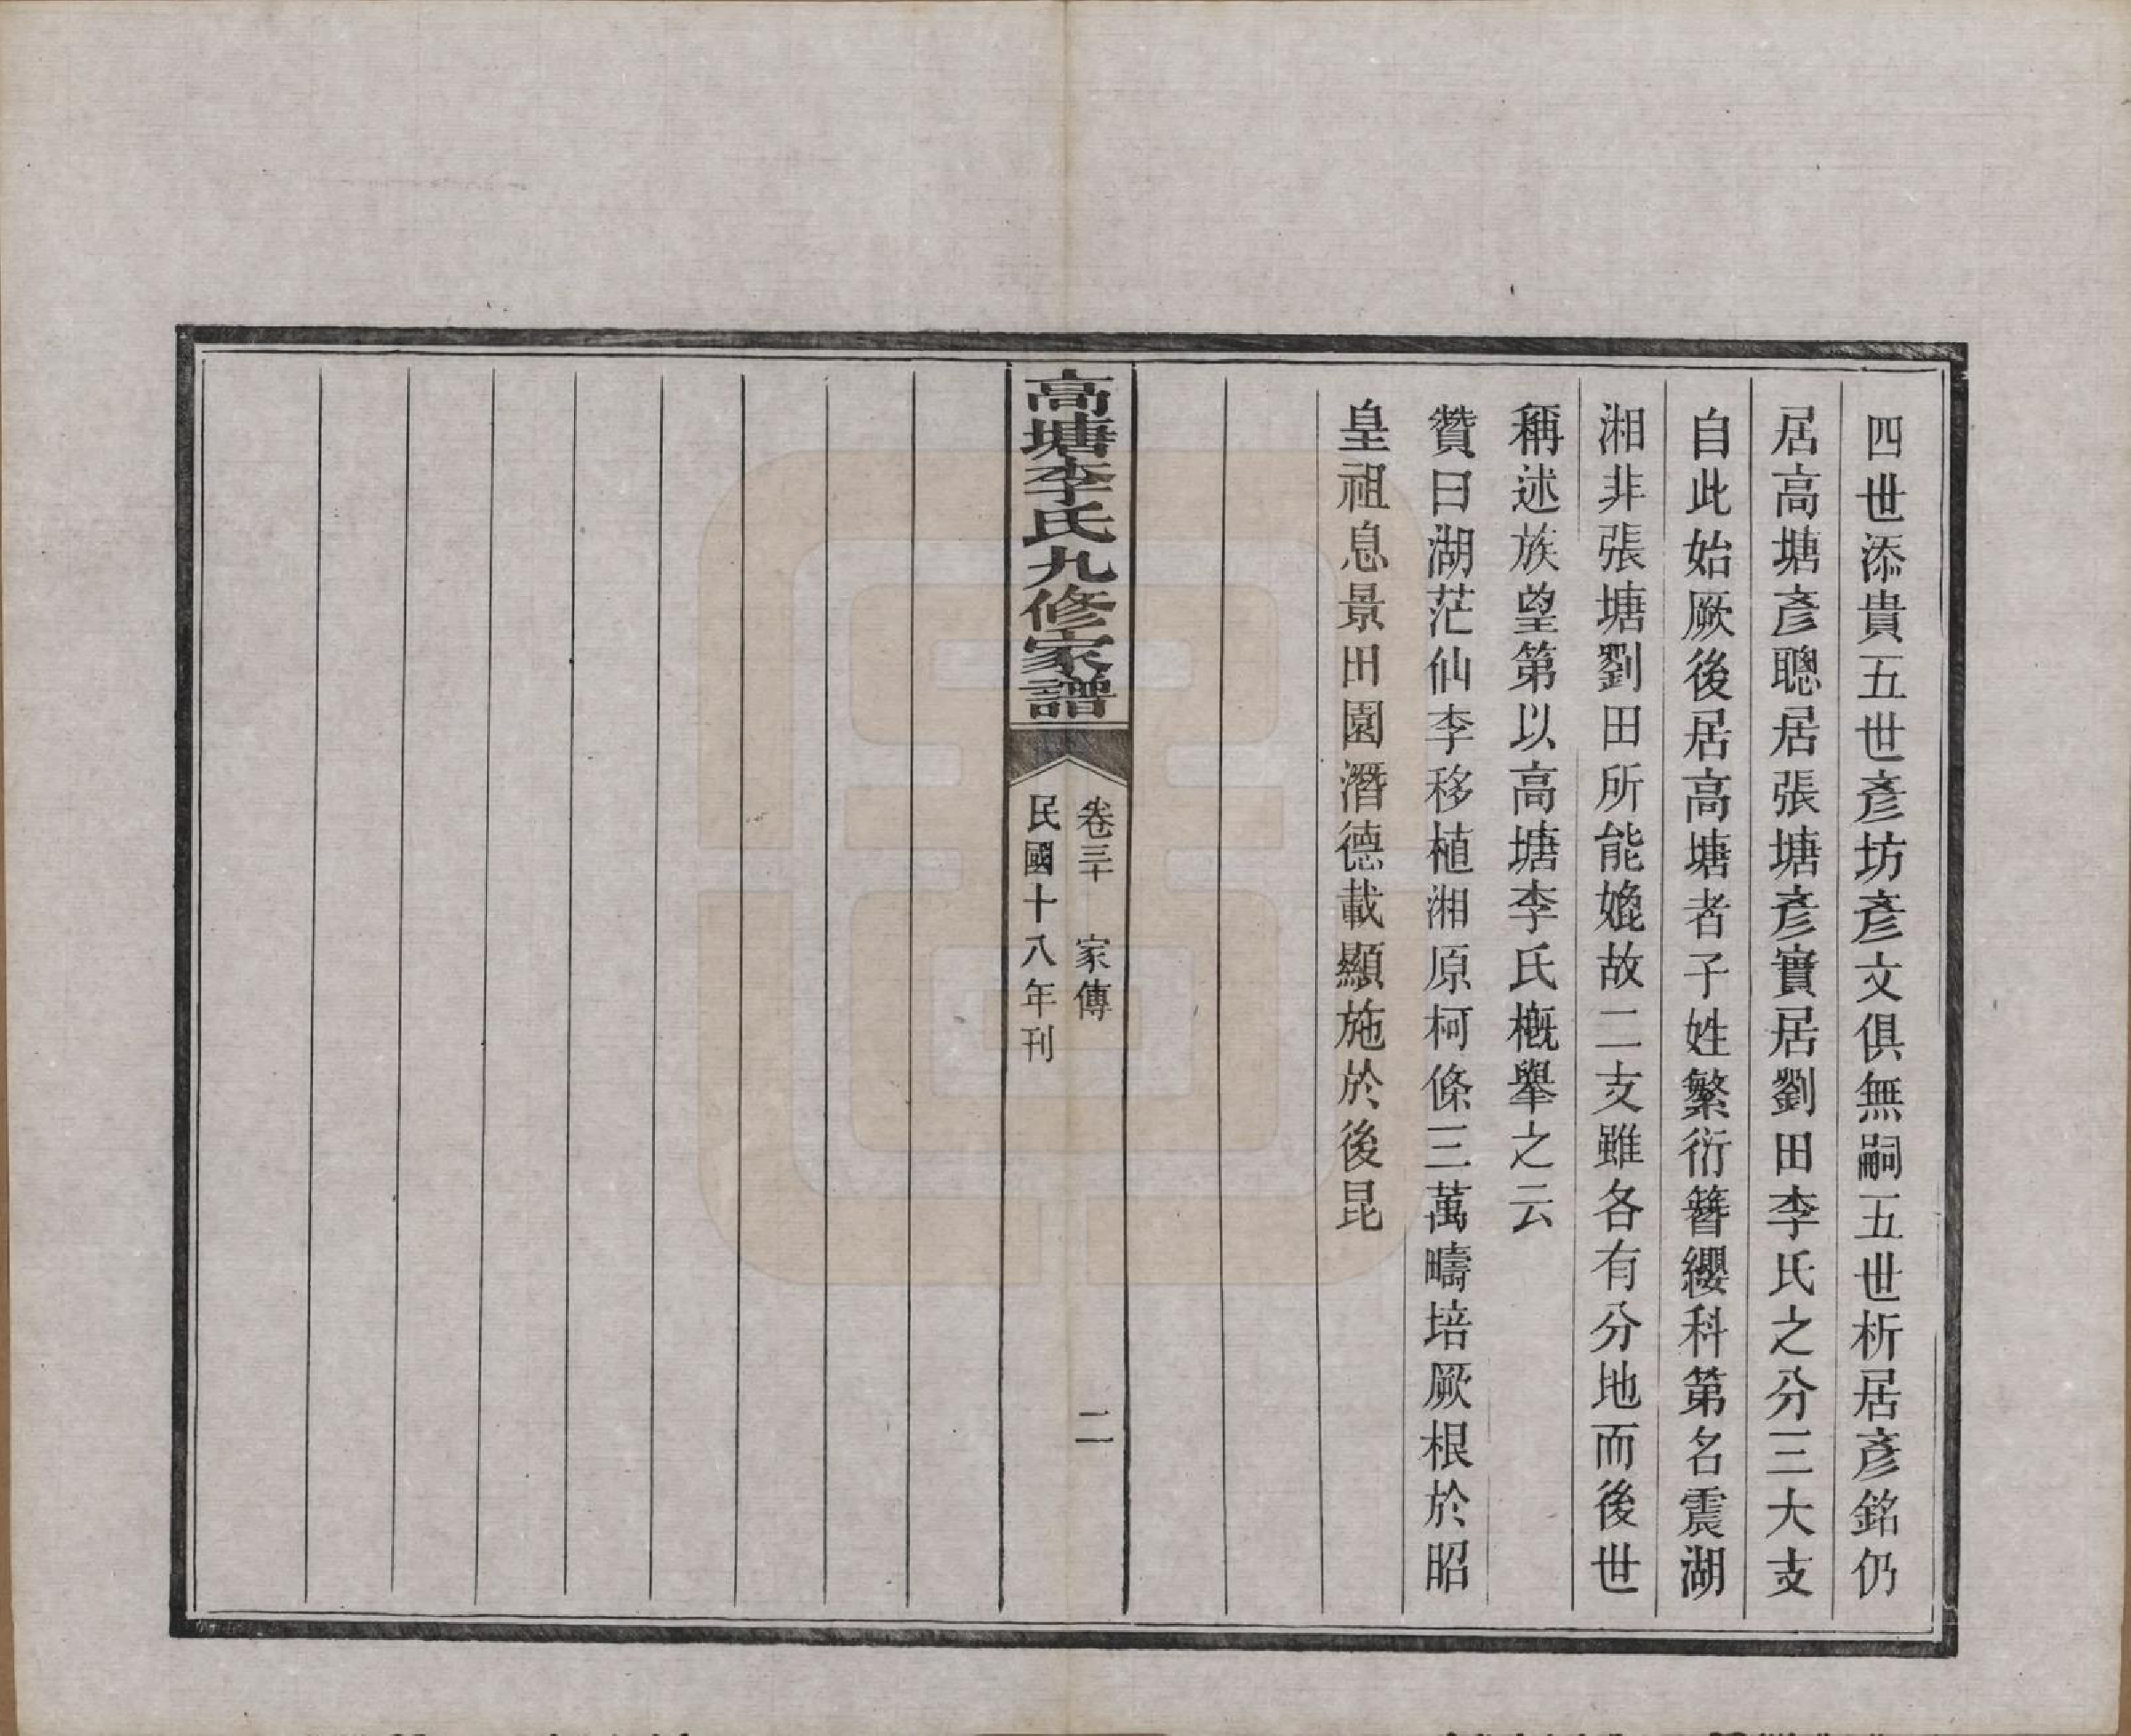 四世添貴五世彥坊彥文俱無嗣五世析居彥銘仍
居高塘彥聰居張塘彥實居劉田李氏之分三大支
自此始厥後居高塘者子姓繁衍簪纓科第名震湖
湘非張塘劉田所能媲故二支雖各有分地而後世
稱述族望第以高塘李氏概舉之云
贊曰湖茫仙李移植湘原柯條三萬疇培厥根於昭
皇祖息景田園潛德載顯施於後昆
高塘李氏九修家譜
卷三十 家傳 二
民國十八年刊